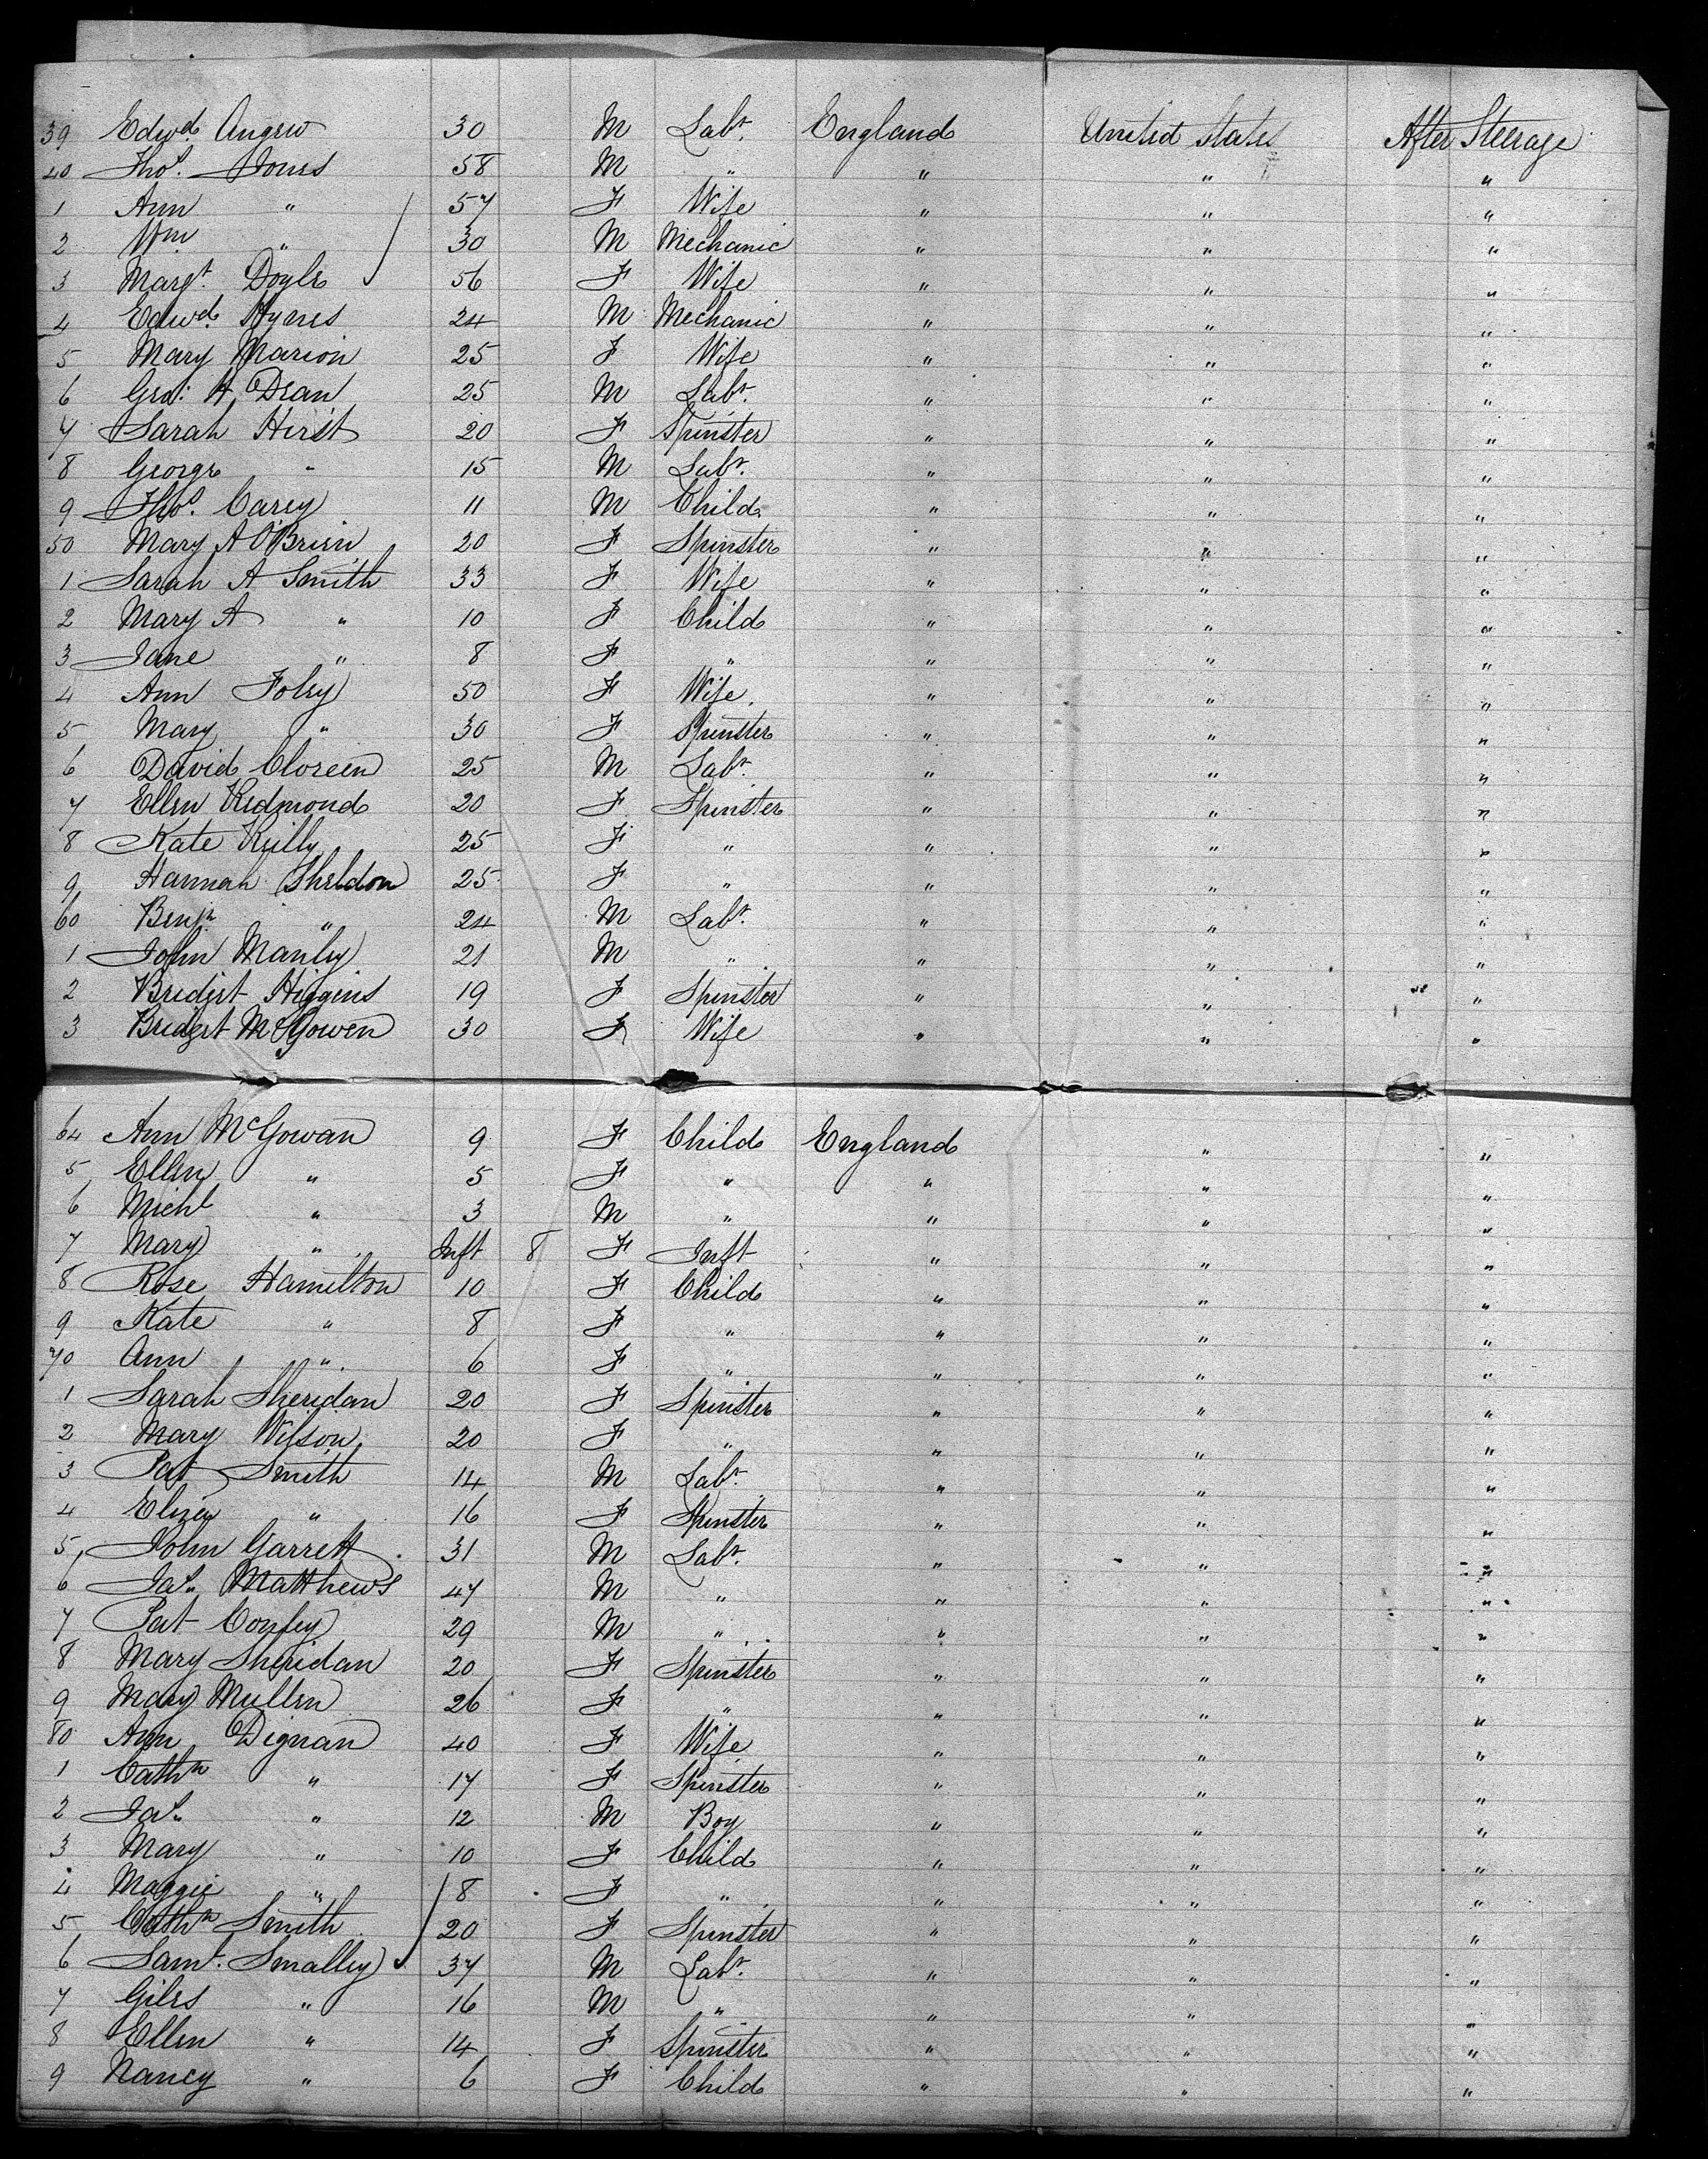 39 Edwd Angew 30 M Labr. England United States After Steerage
40 Thos. Jones 58 M " " " "
1 Ann " 57 F Wife " " "
2 Wm " 30 M Mechanic " " "
3 Margt. Doyle 56 F Wife " " "
4 Edwd. Hynes 24 M Mechanic " " "
5 Mary Marion 25 F Wife " " "
6 Geo. H. Dean 25 M Labr. " " "
7 Sarah Hirst 20 F Spinster " " "
8 George " 15 M Labr. " " "
9 Thos. Carey 11 M Child " " "
50 Mary A O'Brien 20 F Spinster " " "
1 Sarah A Smith 33 F Wife " " "
2 Mary A " 10 F Child " " "
3 Jane " 8 F " " " "
4 Ann Foley 50 F Wife " " "
5 Mary " 30 F Spinster " " "
6 David Cloreen 25 M Labr. " " "
7 Ellen Redmond 20 F Spinster " " "
8 Kate Reilly 25 F " " " "
9 Hannah Sheldon 25 F " " " "
60 Benjn " 24 M Labr. " " "
1 John Manley 21 M " " " "
2 Bridget Higgins 19 F Spinster " " "
3 Bridget McGowen 30 F Wife " " "
64 Ann McGowan 9 F Child England " "
5 Ellen " 5 F " " " "
6 Michl " 3 M " " " "
7 Mary " Inft 8 F Inft " " "
8 Rose Hamilton 10 F Child " " "
9 Kate " 8 F " " " "
70 Ann " 6 F " " " "
1 Sarah Sheridan 20 F Spinster " " "
2 Mary Wilson 20 F " " " "
3 Pat Smith 14 M Labr. " " "
4 Eliza " 16 F Spinster " " "
5 John Garrett 31 M Labr. " " "
6 Jas. Matthews 47 M " " " "
7 Pat Confey 29 M " " " "
8 Mary Sheridan 20 F Spinster " " "
9 Mary Mullen 26 F " " " "
80 Ann Dignan 40 F Wife " " "
1 Cathn " 17 F Spinster " " "
2 Jas. " 12 M Boy " " "
3 Mary " 10 F Child " " "
4 Maggie " 8 F " " " "
5 Cathn Smith 20 F Spinster " " "
6 Saml. Smalley 37 M Labr. " " "
7 Giles " 16 M " " " "
8 Ellen " 14 F Spinster " " "
9 Nancy " 6 F Child " " "